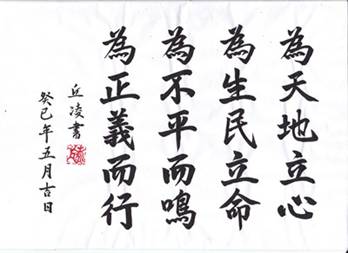 為天地立心
為生民立命
為不平而鳴
為正義而行
丘凌書
癸巳年五月吉日